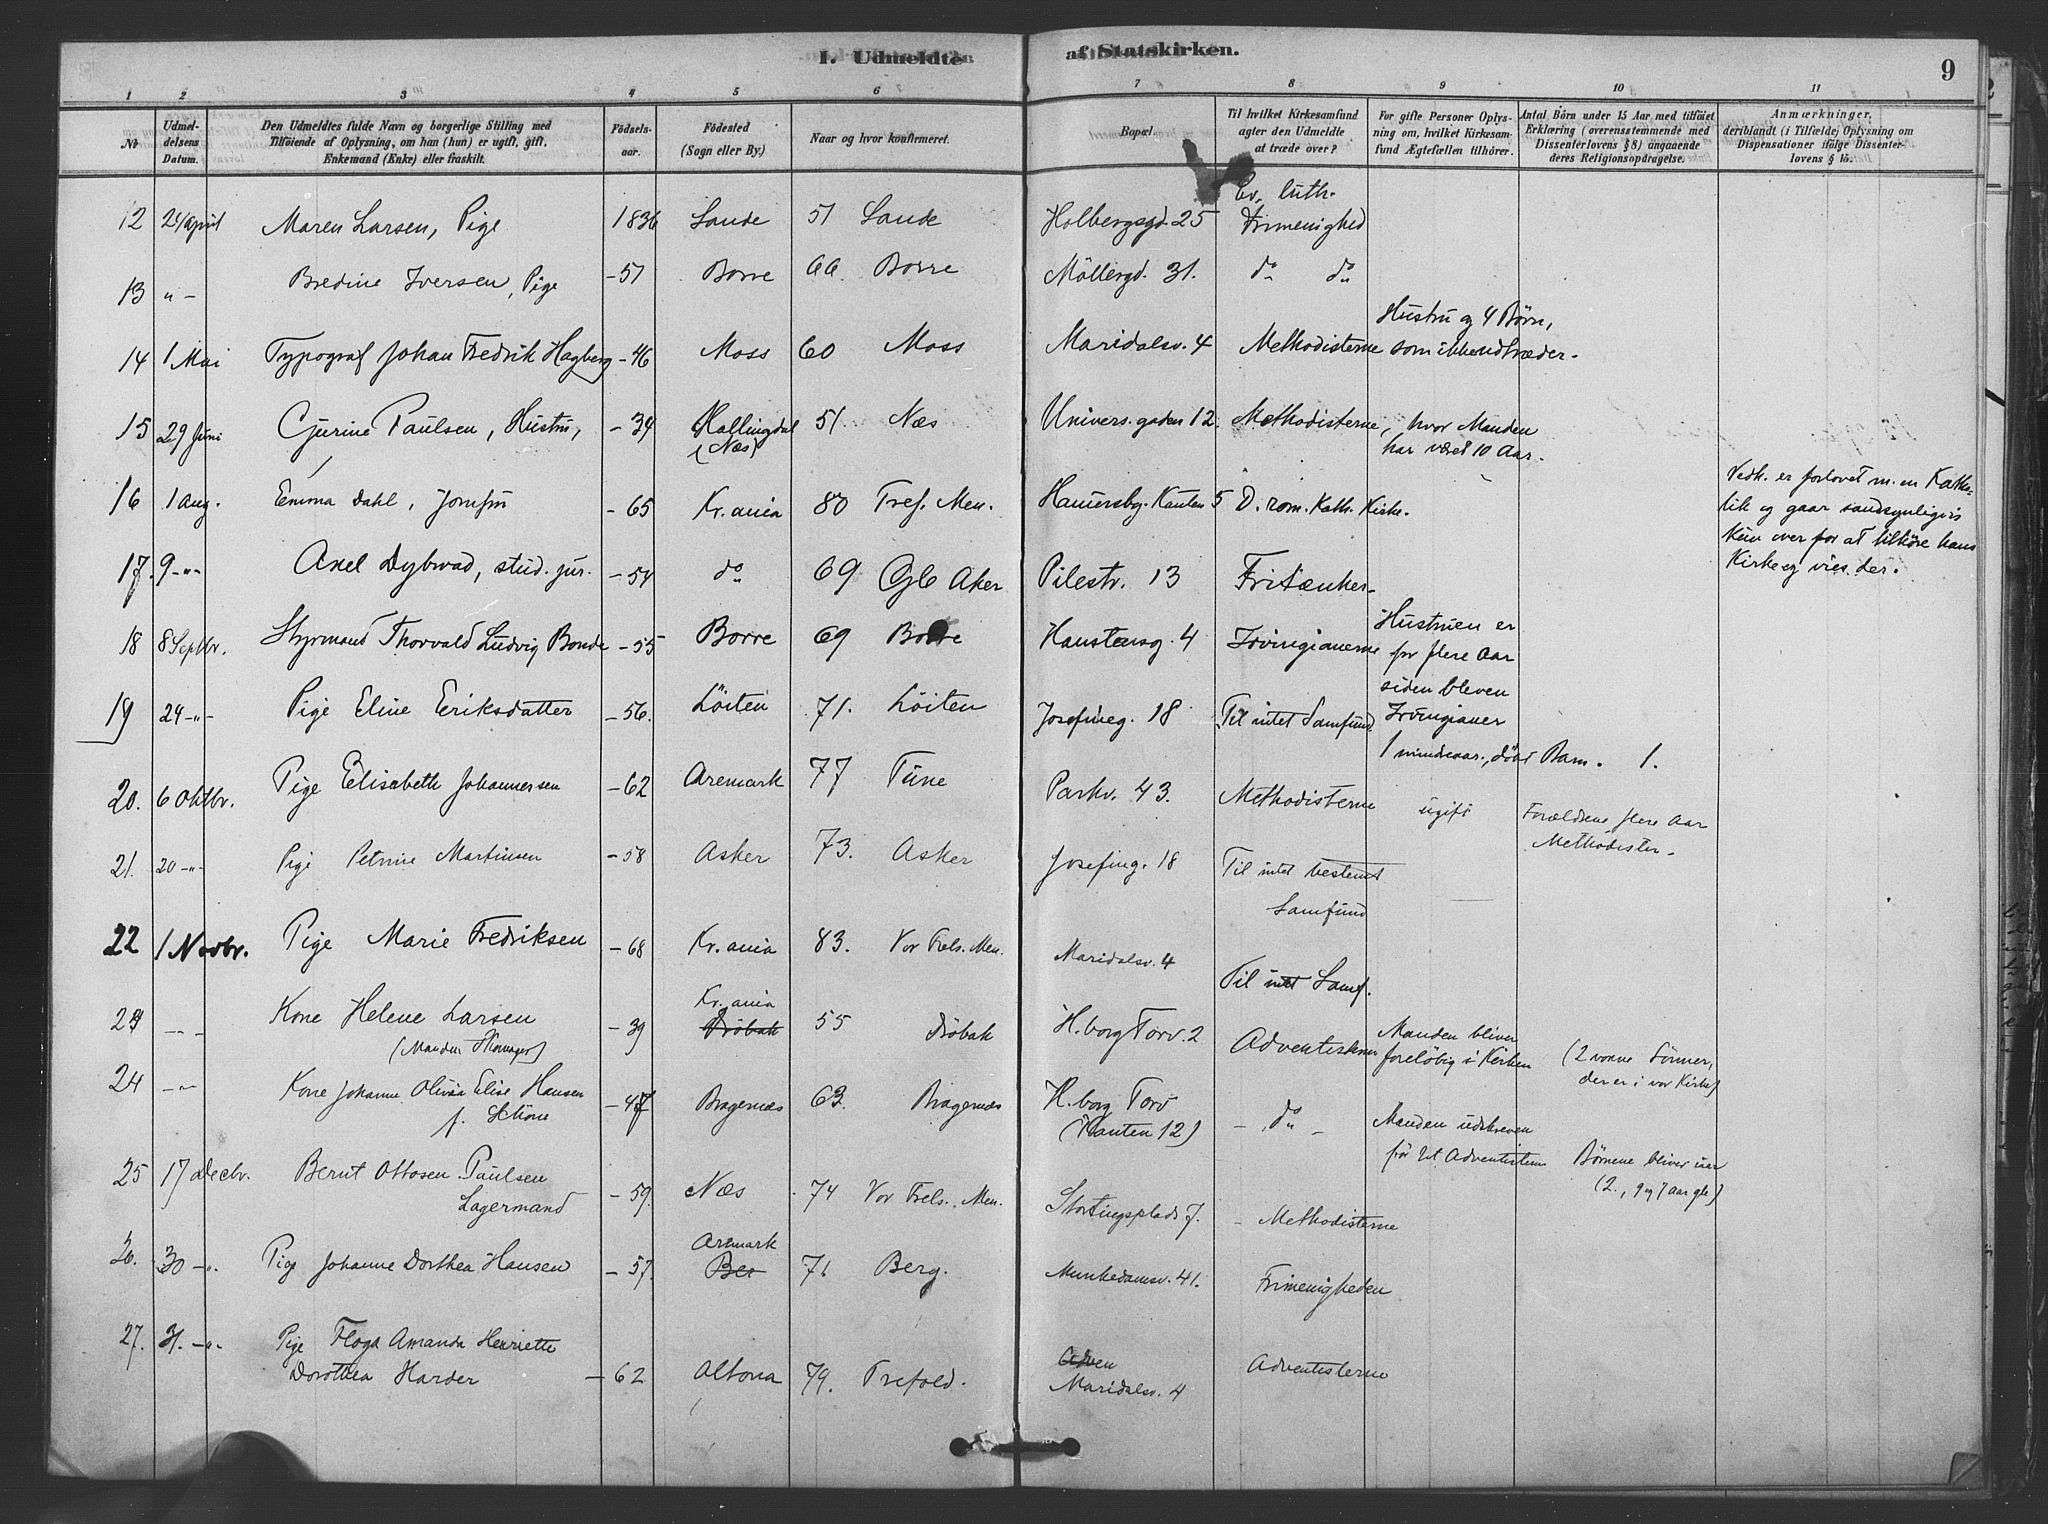 I. Udmeldte af Statskirken.
9
1 2 3 4 5 6 7 8 9 10 11
No
Udmel-
delsens
Datum.
Den Udmeldtes fulde Navn og borgerlige Stilling med
Tilföiende af Oplysning, om han (hun) er ugift, gift,
Enkemand (Enke) eller fraskilt.
Födsels-
aar.
Födested
(Sogn eller By.)
Naar og hvor konfirmeret.
Bopæl.
Til hvilket Kirkesamfund
agter den Udmeldte
at træde over?
For gifte Personer Oplys-
ning om, hvilket Kirkesam-
fund Ægtefællen tilhörer.
Antal Börn under 15 Aar med tilföiet
Erklæring (overensstemmende med
Dissenterlovens § 8) angaaende
deres Religionsopdragelse.
Anmærkninger,
deriblandt (i Tilfælde) Oplysning om
Dispensationer ifölge Dissenter-
lovens § 15.
Ev. luth.
12 24 April Maren Larsen, Pige 1836 Sande 51 Sande Holbergsgd. 25 Frimenighed
13 " - Bredine Iversen, Pige - 51 Borre 66 Borre Möllergd. 31. do do
Hustru og 4 Børn,
14 1 Mai Typograf Johan Fredrik Hagberg - 46 Moss 60 Moss Maridalsv. 4 Methodisterne som ikke udtræder.
15 29 Juni Gjurine Paulsen, Hustru, - 34 Hallingdal 51 Næs Univers. gaden 12. Methodisterne, hvor Manden
(Næs) har været 10 Aar.
16 1 Aug. Emma Dahl, Jomfru - 65 Kr.ania 80 Tref. Men. Hauersbg. Kanten 5 D. rom. Kath. Kirke.
Vedk. er forlovet m. en Katho-
lik og gaar sandsynligvis
kun over for at tilhöre hans
Kirke og vies der.
17. 9 -"- Axel Dybwad, stud. jur. - 54 do 69 Gl. Aker Pilestr. 13 Fritænker
18 8 Septbr. Styrmand Thorvald Ludvig Bonde - 55 Borre 69 Borre Haustensg. 4 Irvingianerne
Hustruen er
for flere Aar
siden bleven
Irvingianer
19 24 -"- Pige Eline Eriksdatter - 56. Löiten 71. Löiten Josefineg. 18 Til intet Samfund.
1 mindreaar., döbt Barn. 1.
20. 6 Oktbr. Pige Elisabeth Johannersen - 62 Aremark 77 Tune Parkv. 43. Methodisterne ugift Forældrene flere Aar
Methodister.
21. 20 -"- Pige Petrine Martinsen - 58 Asker 73. Asker Josefineg. 18 Til intet bestemt
Samfund
22 1 Novbr. Pige Marie Fredriksen - 68 Kr.ania 83. Vor Frels. Men. Maridalsv. 4
Til intet Samf.
23 -"- Kone Helene Larsen - 39 Kr.ania Dröbak 55 Dröbak H.borg Torv. 2 Adventisterne Manden bliver
foreløbig i Kirken
(2 voxne Sönner,
der er i vor Kirke)
(Manden Skomager)
24 -"- Kone Johanne Olivia Elise Hansen - 47 Bragenæs 63. Bragenæs H.borg Torv
f. Schöne (Kanten 12) - do - Manden udskreven
før til Adventisterne Børnene bliver uær
(2., 9 og 7 Aar gle)
25 17 Decbr. Bernt Ottosen Paulsen
Lagermand - 59. Næs 74 Vor Frels. Men. Stortingsplads 7. - Methodisterne
26. 30 -"- Pige Johanne Dorthea Hansen - 57 Aremark Ber 71 Berg. Munkedamsv. 41. Frimenigheden
27. 31. -"- Pige Floga Amanda Henriette
Dorothea Harder - 62 Altona 79. Trefold. Adven
Maridalsv. 4 Adventisterne